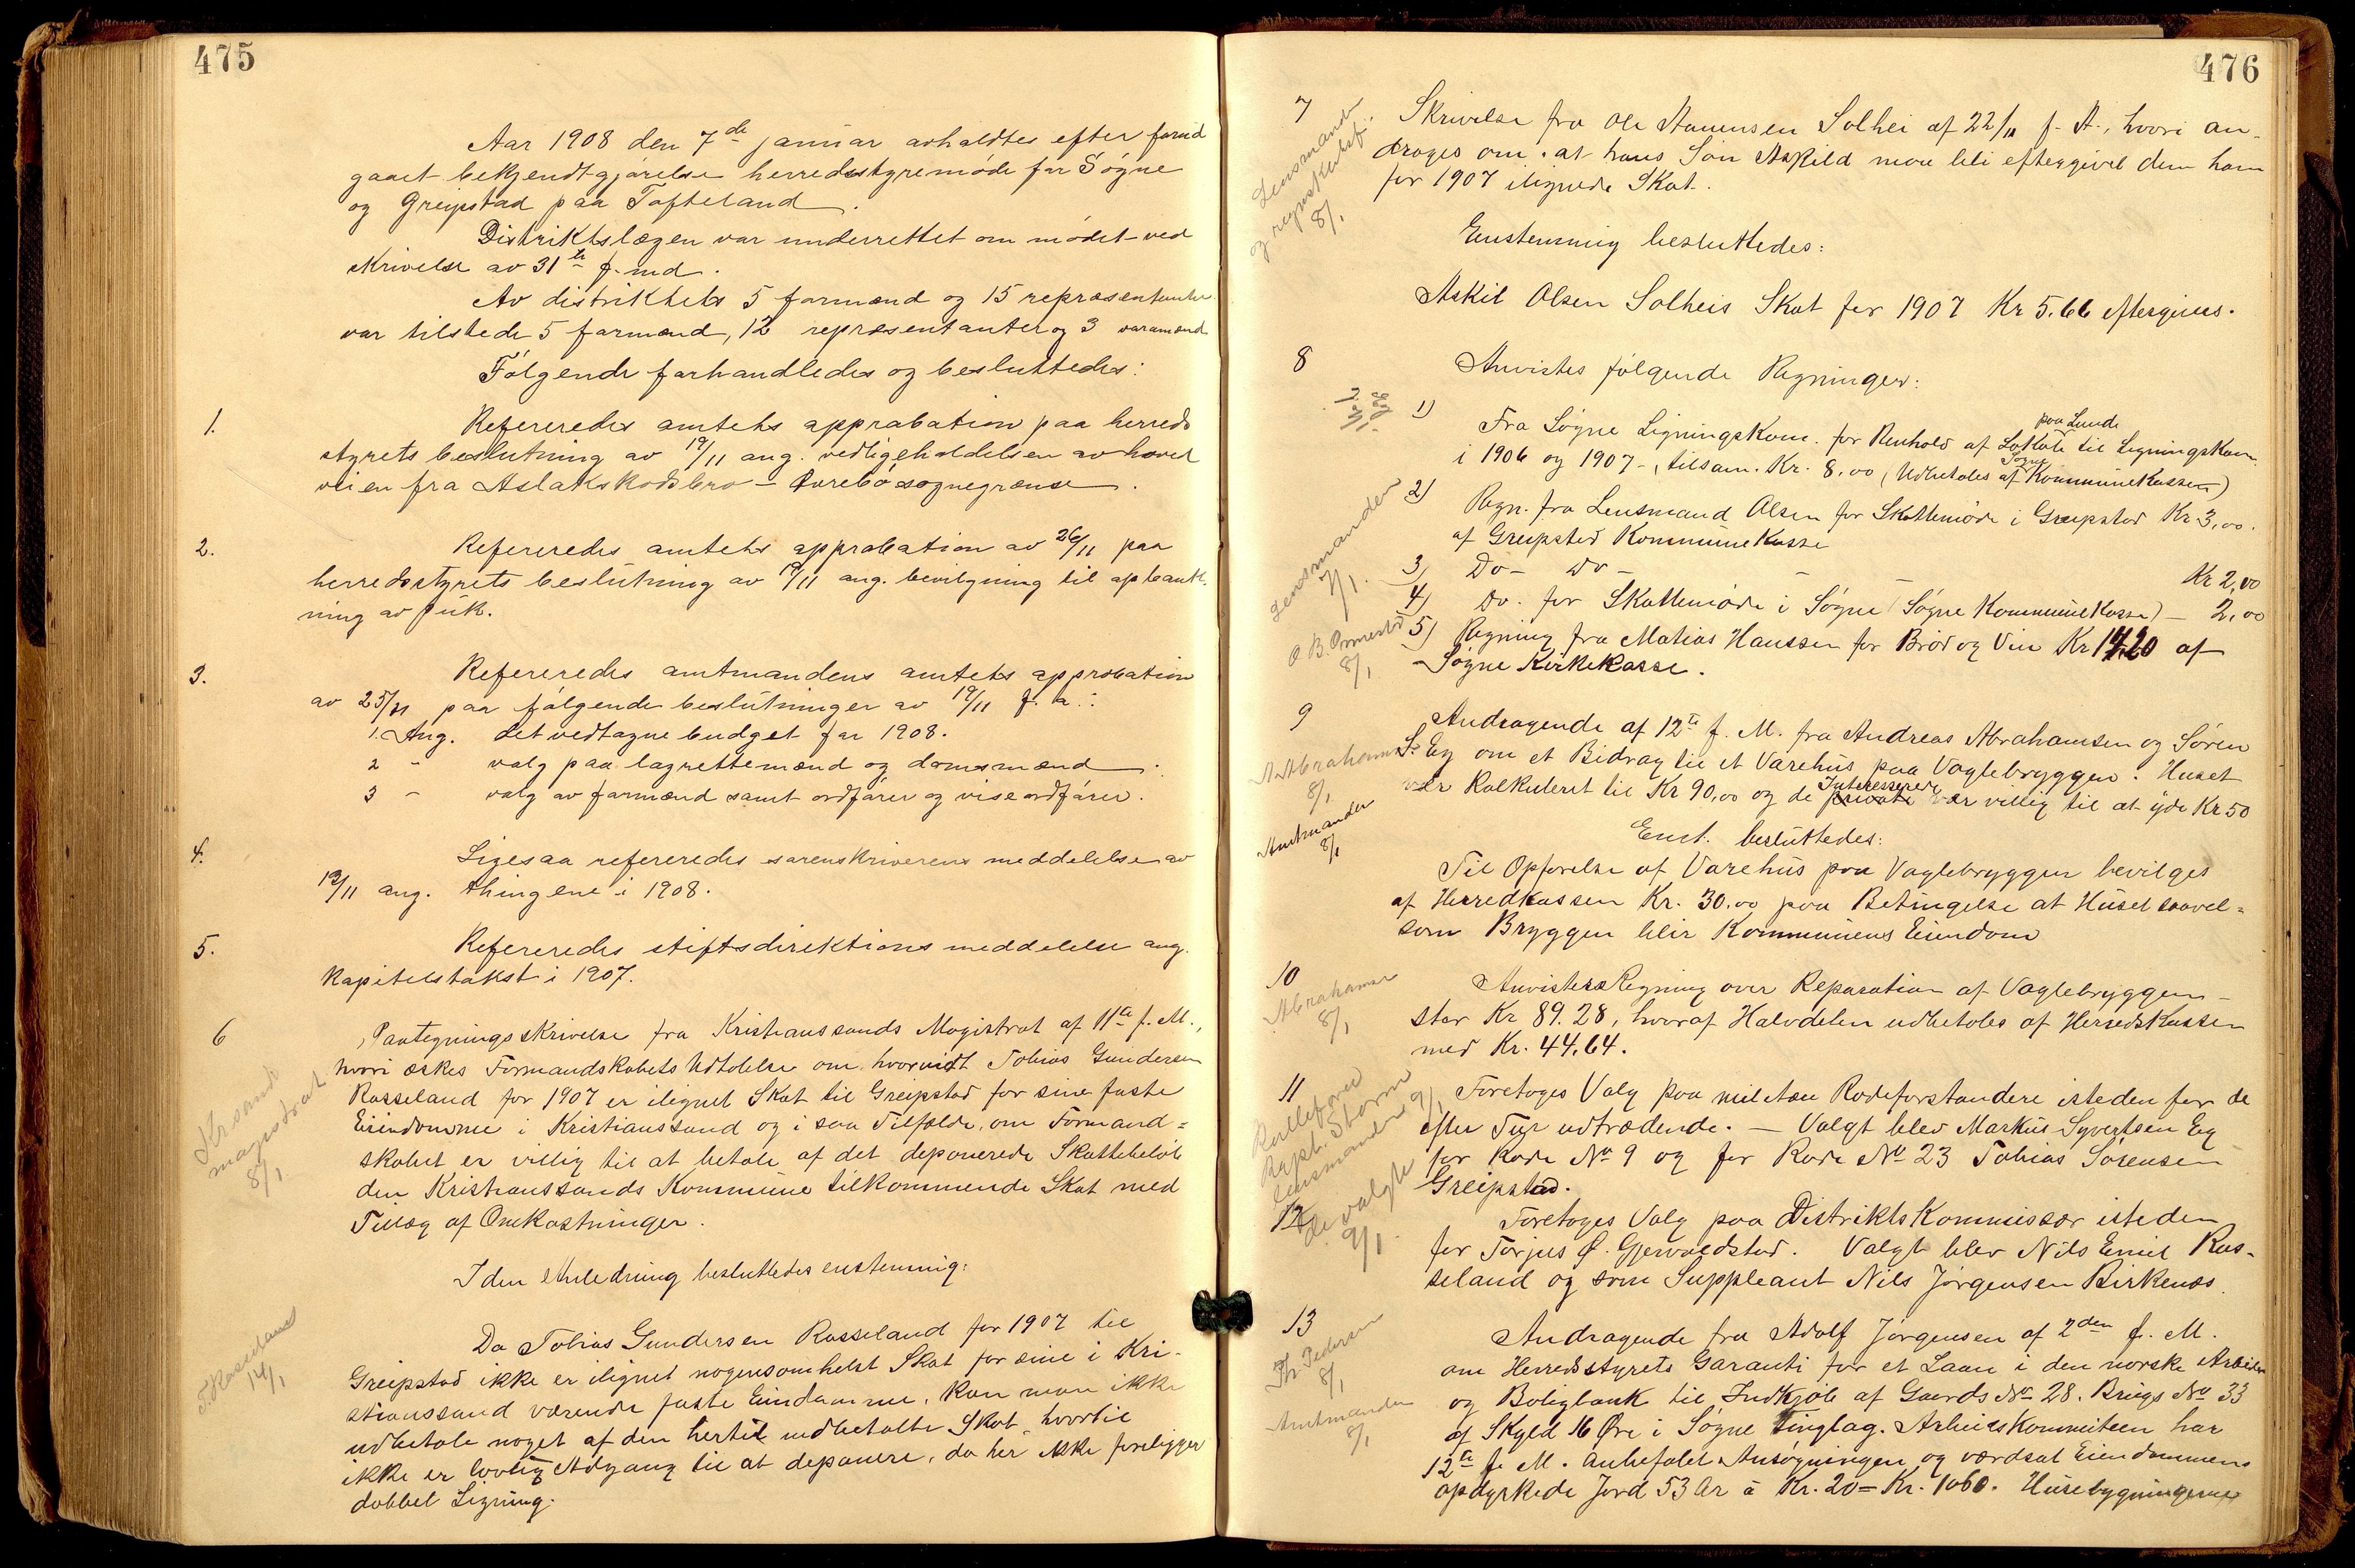 475
Aar 1908 den 7de januar avholdtes efter forud
gaaet bekjendtgjørelse herredsstyremøde for Søgne
og Greipstad paa Tofteland.
Distriktslægen var underrettet om mødet ved
skrivelse av 31te f. md.
Av distriktets 5 formænd og 15 repræsentanter
var tilstede 5 formænd, 12 repræsentanter og 3 varamænd
Følgende forhandledes og besluttedes:
1. Refereredes amtets approbation paa herreds
styrets beslutning av 19/11 ang. vedligeholdelsen av hoved
veien fra Aslakskodsbro - sognegrænse.
2. Refereredes amtets approbation av 26/11 paa
herredsstyrets beslutning av 19/11 ang. bevilgning til opteant
ning av
3. Refereredes amtmandens amtets approbation
av 25/11 paa følgende beslutninger av 19/11 f. a.:
1. Ang. det vedtagne budget for 1908.
2 - valg paa lagrettemænd og domsmænd.
3 - valg av formænd samt ordfører og viseordfører.
4. Ligesaa refereredes sorenskriverens meddelelse av
12/11 ang. thingene i 1908.
5. Refereredes stiftsdirektions meddelelse ang.
kapitelstakst i 1907.
6 Paategningsskrivelse fra Kristianssands Magistrat af 11te f. M.,
hvori æskes Formandskabets Udtalelse om hvorvidt Tobias Gundersen
Rosseland for 1907 er ilignet Skat til Greipstad for sine faste
Eiendomme i Kristianssand og i saa Tilfælde, om Formand=
skabet er villig til at betale af det deponerede Skattebeløb
den Kristianssands Kommune tilkommende Skat med
Tillæg af Omkostninger.
Krsand
magistrat
8/1
I den Anledning besluttedes enstemmig:
Da Tobias Gundersen Rosseland for 1907 til
Greipstad ikke er ilignet nogensomhelst Skat for sine i Kri-
stianssand værende faste Eiendomme, kan man ikke
udbetale noget af den hertil indbetalte Skat, hvortil
ikke er lovlig Adgang til at deponere, da her ikke foreligger
dobbel Ligning.
T. Rosseland
14/1
476
7 Skrivelse fra Ole Solhei af 22/11 f. A., hvori an-
drages om at hans Søn Askild maa bli eftergivet den ham
for 1907 ilignede Skat.
Lensmand
og regnskabsf.
8/1
Enstemmig besluttedes:
Askil Olsen Solheis Skat for 1907 Kr 5.66 eftergives.
8 Anvistes følgende Regninger:
1) Fra Søgne Ligningskom. for Renhold af Lokale paa Lunde til Ligningskom
i 1906 og 1907 -, tilsam. Kr. 8,00 (Udbetales af Søgne Kommunekassen)
2) Regn. fra Lensmand Olsen for Skattemøde i Greipstad Kr 3,00.
af Greipstad Kommunekasse
3) Do - Do - Kr 2,00
4) Do. for Skattemøde i Søgne (Søgne Kommunekasse) - 2,00
5) Regning fra Matias Hanssen for Brød og Vin Kr 14,20 af
Søgne Kirkekasse.
Lensmanden
7/1.
O B. Ormestad
8/1
9 Andragende af 12te f. M. fra Andreas Abrahamsen og Søren
S. Eg om et Bidrag til et Varehus paa Vaglebryggen. Huset
er kalkuleret til Kr 90,00 og de private Interesserede var villig til at yde Kr 50
A. Abrahamsen
8/1
Amtmanden
8/1
Enst. besluttedes:
Til Opførelse af Varehus paa Vaglebryggen bevilges
af Herredkassen Kr. 30,00 paa Betingelse at Huset saavel=
som Bryggen blir Kommunens Eiendom
10 Anvistes Regning over Reparation af Vaglebryggen -
stor Kr 89.28, hvoraf Halvdelen udbetales af Herredskassen
med Kr. 44,64.
Abrahamsen
8/1
11 Foretoges Valg paa militære Rodeforstandere isteden for de
efter Tur udtrædende. — Valgt blev Markus Syvertsen Eg
for Rode No 9 og for Rode No 23 Tobias Sørensen
Greipstad.
Rullefører
Kapt. Storm
Lensmanden 9/1
de valgte
9/1
12 Foretoges Valg paa Distriktskommissær isteden
for Torjus O. Gjervoldstad. Valgt blev Nils Emil Ros-
seland og som Suppleant Nils Jørgensen Birkenes.
13 Andragende fra Adolf Jørgensen af 2den f. M.
om Herredsstyrets Garanti for et Laan i den norske Arbeider
og Boligbank til Indkjøb af Gaards No 28. Brugs No 33
af Skyld 16 Øre i Søgne Tinglag. Arbeidskommiteen har
12te f. M. anbefalet Ansøgningen og værdsat Eiendommens
opdyrkede Jord 53 Ar à Kr. 20 = Kr. 1060. Husebygningerne
Th. Pedersen
8/1
Amtmanden
8/1